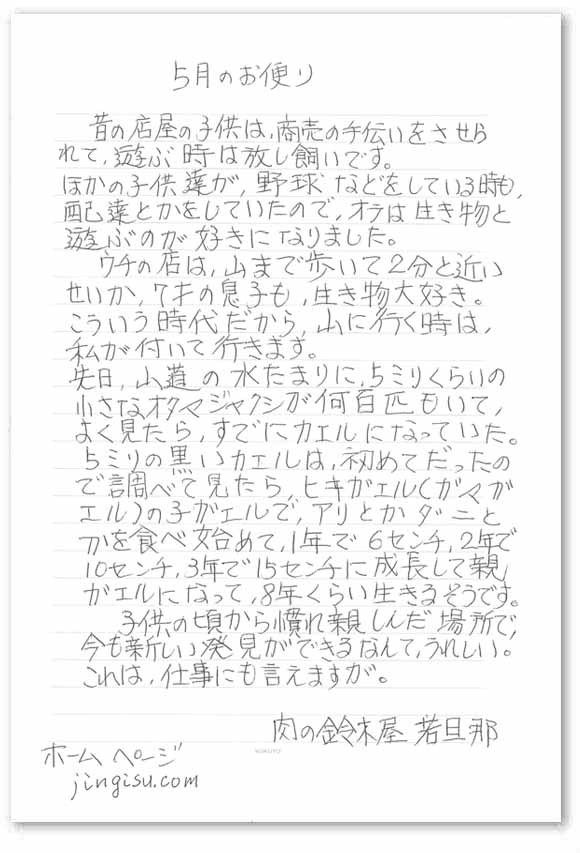 5月のお便り
昔の店屋の子供は、商売の手伝いをさせら
れて、遊ぶ時は放し飼いです。
ほかの子供達が、野球などをしている時も、
配達とかをしていたので、オラは生き物と
遊ぶのが好きになりました。
ウチの店は、山まで歩いて2分と近い
せいか、7才の息子も、生き物大好き。
こういう時代だから、山に行く時は、
私が付いて行きます。
先日、山道の水たまりに、5ミリくらいの
小さなオタマジャクシが何百匹もいて、
よく見たら、すでにカエルになっていた。
5ミリの黒いカエルは、初めてだったの
で調べて見たら、ヒキガエル(ガマガ
エル)の子ガエルで、アリとかダニと
かを食べ始めて、1年で6センチ、2年で
10センチ、3年で15センチに成長して親
ガエルになって、8年くらい生きるそうです。
子供の頃から慣れ親しんだ場所で、
今も新しい発見ができるなんて、うれしい。
これは、仕事にも言えますが。
肉の鈴木屋 若旦那
KOKUYO
ホームページ
jingisu.com